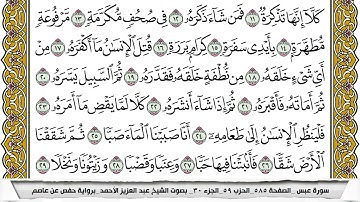 كَلَّا إِنَّهَا تَذْكِرَةٌ ١١ فَمَن شَاءَ ذَكَرَهُ ١٢ فِي صُحُفٍ مُّكَرَّمَةٍ ١٣ مَّرْفُوعَةٍ
مُّطَهَّرَةٍ ١٤ بِأَيْدِي سَفَرَةٍ ١٥ كِرَامٍ بَرَرَةٍ ١٦ قُتِلَ الْإِنسَانُ مَا أَكْفَرَهُ ١٧ مِنْ
أَيِّ شَيْءٍ خَلَقَهُ ١٨ مِن نُّطْفَةٍ خَلَقَهُ فَقَدَّرَهُ ١٩ ثُمَّ السَّبِيلَ يَسَّرَهُ ٢٠
ثُمَّ أَمَاتَهُ فَأَقْبَرَهُ ٢١ ثُمَّ إِذَا شَاءَ أَنشَرَهُ ٢٢ كَلَّا لَمَّا يَقْضِ مَا أَمَرَهُ ٢٣
فَلْيَنظُرِ الْإِنسَانُ إِلَىٰ طَعَامِهِ ٢٤ أَنَّا صَبَبْنَا الْمَاءَ صَبًّا ٢٥ ثُمَّ شَقَقْنَا
الْأَرْضَ شَقًّا ٢٦ فَأَنبَتْنَا فِيهَا حَبًّا ٢٧ وَعِنَبًا وَقَضْبًا ٢٨ وَزَيْتُونًا وَنَخْلًا ٢٩
سورة عبس _ الصفحة ٥٨٥ _ الحزب ٥٩ _ الجزء ٣٠ _ بصوت الشيخ عبد العزيز الأحمد _ برواية حفص عن عاصم